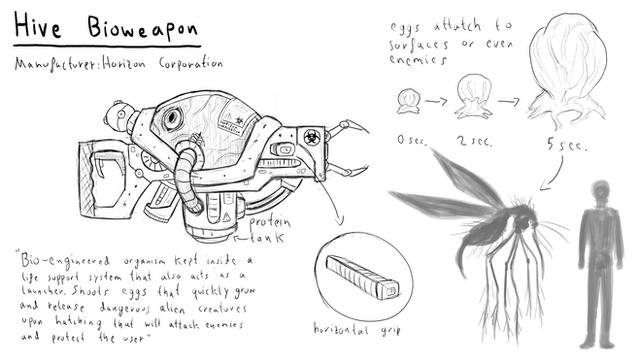 Hive Bioweapon
Manufacturer: Horizon Corporation
eggs attatch to
surfaces or even
enemies
0 sec.
2 sec.
5 sec.
protein
tank
"Bio-engineered organism kept inside a
life support system that also acts as a
launcher. Shoots eggs that quickly grow
and release dangerous alien creatures
upon hatching that will attack enemies
and protect the user"
horizontal grip